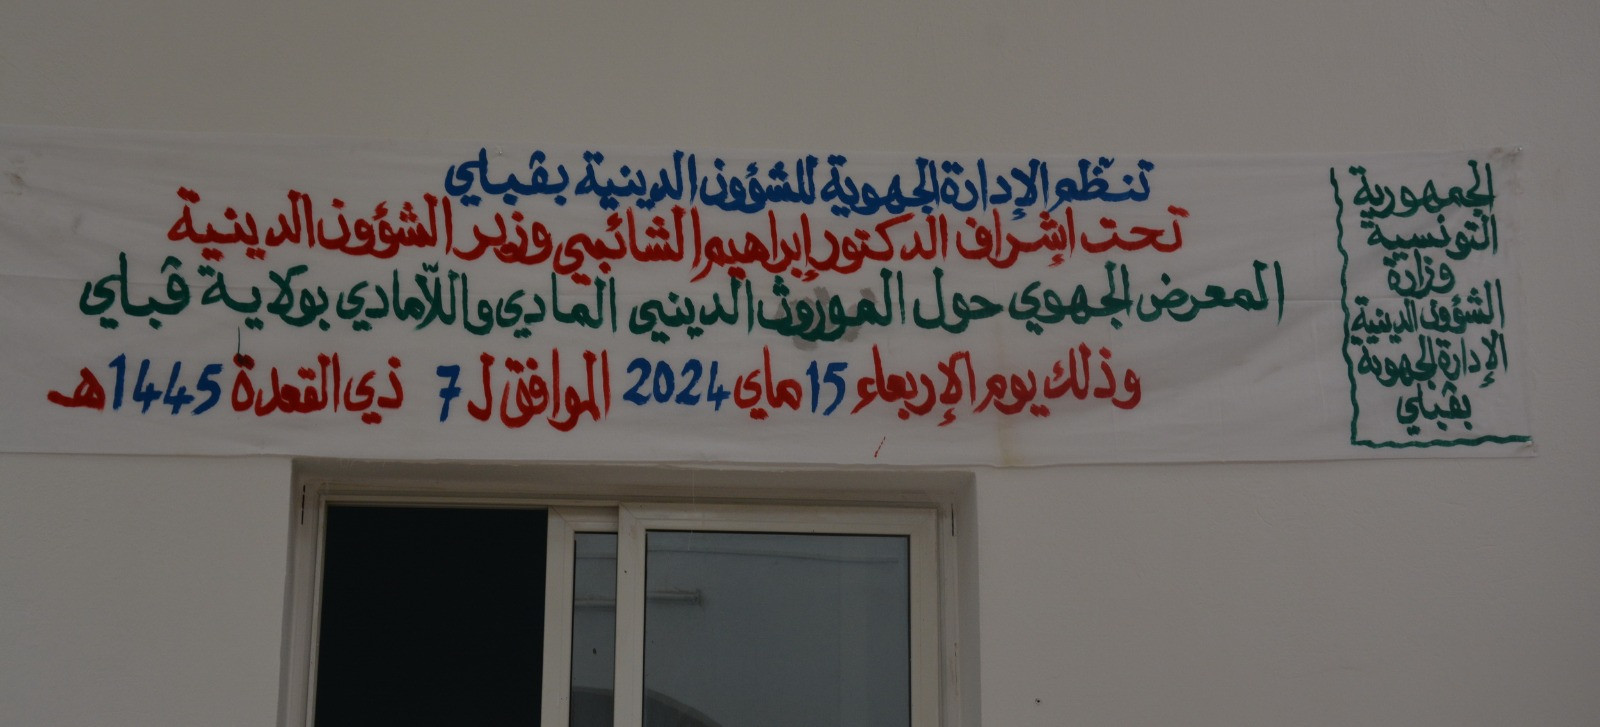 الجمهورية
التونسية
وزارة
الشؤون الدينية
الإدارة الجهوية
بڨبلي
تنظّم الإدارة الجهوية للشؤون الدينية بڨبلي
تحت إشراف الدكتور إبراهيم الشائبي وزير الشؤون الدينية
المعرض الجهوي حول الموروث الديني المادي واللاّمادي بولاية ڨبلي
وذلك يوم الإربعاء 15 ماي 2024 الموافق ل 7 ذي القعدة 1445هـ